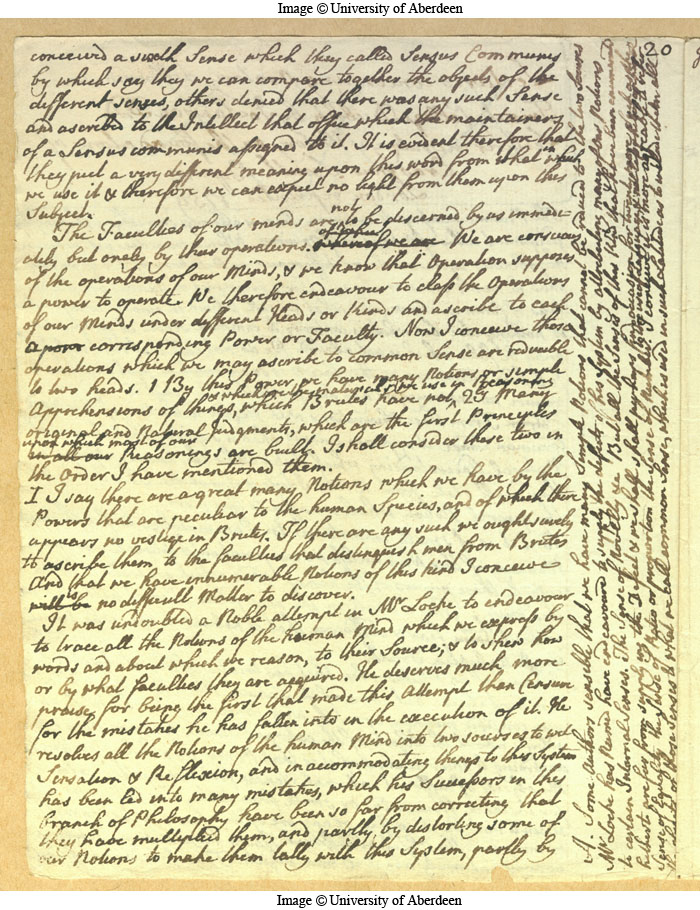 Image © University of Aberdeen
20
conceived a sixth Sense which they called Sensus Communis
by which say they we can compare together the objects of the
different senses, others denied that there was any such Sense
and ascribed to the Intellect that office which the maintainers
of a Sensus communis assigned to it. It is evident therefore that
they put a very different meaning upon this word from what in which
we use it & therefore we can expect no light from them upon this
Subject.
The Faculties of our minds are not to be discerned by us immedi
ately but onely by their operations. of which whereof we are We are conscious
of the operations of our Minds, & we know that Operation supposes
a power to operate. We therefore endeavour to class the Operations
of our Minds under different Heads or Kinds and ascribe to each
a power corresponding Power or Faculty. Now I conceive those
operations which we may ascribe to common Sense are reduceable
to two heads. 1 By this Power, we have many Notions or simple
Apprehensions of things, & which are the materials we use in Reasoning which Brutes have not, 2ly Many
original and Natural Judgments, which are the first Principles
upon which most of our in all our Reasonings are built. I shall consider these two in
the Order I have mentioned them.
I I say there are a great many Notions which we have by the
Powers that are peculiar to the human Species, and of which there
appears no vestige in Brutes. If there are any such we ought surely
to ascribe them to the faculties that distinguish men from Brutes
And that we have innumerable Notions of this kind I conceive
will be no difficult Matter to discover.
It was undoubted a Noble attempt in Mr Locke to endeavour
to trace all the Notions of the human Mind which we express by
words and about which we reason, to their Source; & to shew how
or by what faculties they are acquired. He deserves much more
praise for being the first that made this Attempt than Censure
for the mistakes he has fallen into in the execution of it. He
resolves all the Notions of the human Mind into two sources to wit
Sensation & Reflexion, and in accommodating things to this System
has been led into many mistakes, which his Successors in this
branch of Philosophy have been so far from correcting that
they have multiplied them, and partly by distorting some of
our Notions to make them tally with this System, partly by
A: Some Authors sensible that we have many Simple Notions that cannot be reduced to the two Sources
Mr Locke has Named have endeavoured to supply the defects of his System by attributing many of our Notions
to certain Internal Senses. The Sense of Novelty
But all the Senses of this kind that have been
from supplying the Defect & we shall
Sense of Equality the Sense of Ratio or proportion the Sense of Number. I conceive it is more
the defects of those Senses is what we call common Sense, which is used in such a latitude as to
Image © University of Aberdeen